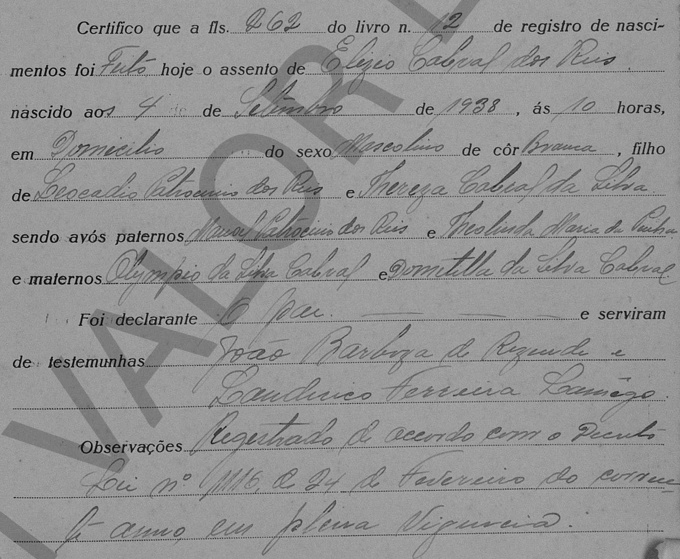 Certifico que a fls. 262 do livro n. 12 de registro de nasci-
mentos foi Feito hoje o assento de Elyzio Cabral dos Reis.
nascido aos 4 de Setembro de 1938, ás 10 horas,
em Domicilio do sexo Mascolino de côr Branca, filho
de Leocadio Patrocinio dos Reis e Thereza Cabral da Silva
sendo avós paternos Manoel Patrocino dos Reis e Maria da
e maternos Olympio da Silva Cabral e Domitilla da Silva Cabral
Foi declarante O pae. e serviram
de testemunhas João Barboza de Rezende e
Ferreira Lamêgo.
Observações Regestrado de accordo com o Decreto
Lei nº 1116, de 24 de Fevereiro do corren-
te anno, em plena Vigencia.
VALOR